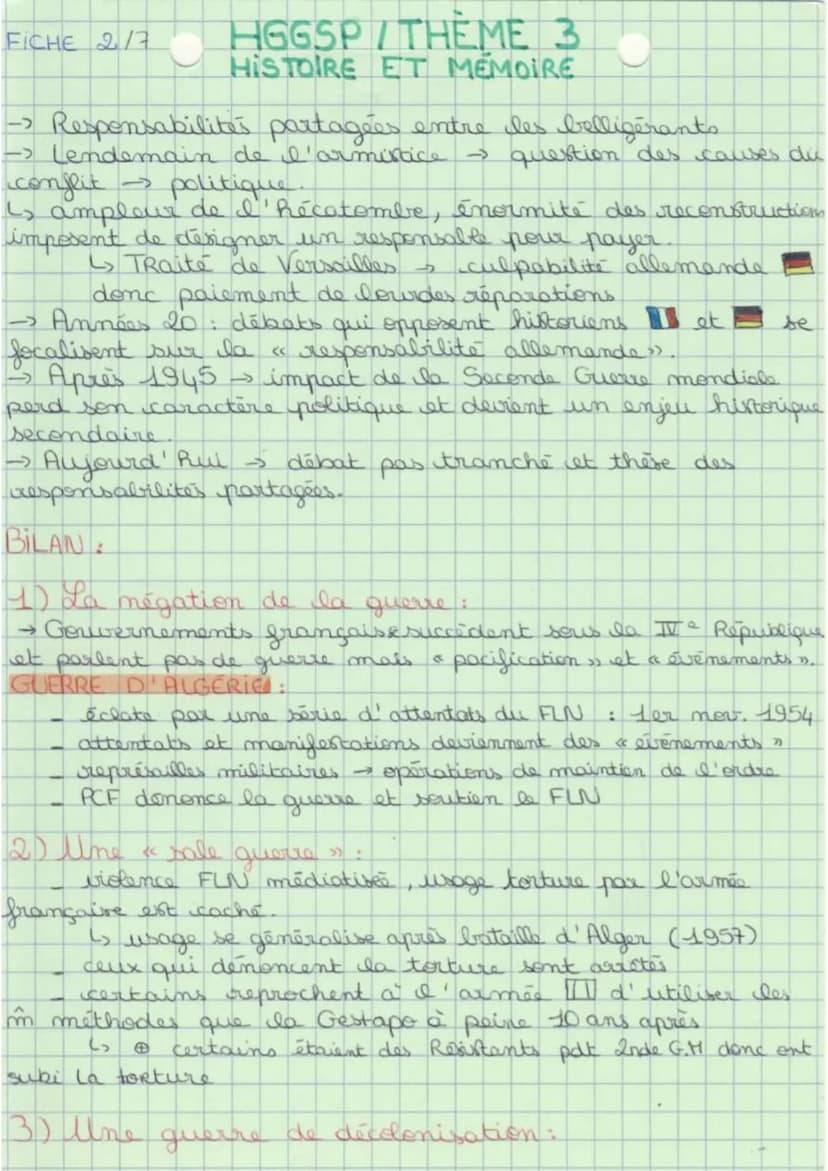 FICHE 2/7
HGGSP / THÈME 3
HISTOIRE ET MÉMOIRE
-> Responsabilités partagées entre les belligérants
-> Lendemain de l'armistice -> question des causes du
conflit -> politique.
↳ ampleur de l'hécatombe, énormité des reconstructions
imposent de désigner un responsable pour payer.
↳ TRaité de Versailles -> culpabilité allemande 🇩🇪
donc paiement de lourdes réparations
-> Années 20 : débats qui opposent historiens 🇫🇷 et 🇩🇪 se
focalisent sur la « responsabilité allemande ».
-> Après 1945 -> impact de la Seconde Guerre mondiale
perd son caractère politique et devient un enjeu historique
secondaire.
-> Aujourd'hui -> débat pas tranché et thèse des
responsabilités partagées.
BILAN :
1) La négation de la guerre :
-> Gouvernements français se succèdent sous la IVe République
et parlent pas de guerre mais « pacification » et « événements ».
GUERRE D'ALGÉRIE :
- éclate par une série d'attentats du FLN : 1er nov. 1954
- attentats et manifestations deviennent des « événements »
- représailles militaires -> opérations de maintien de l'ordre
- PCF dénonce la guerre et soutien le FLN
2) Une « sale guerre » :
- violence FLN médiatisée, usage torture par l'armée
française est caché.
↳ usage se généralise après bataille d'Alger (1957)
- ceux qui dénoncent la torture sont arrêtés
- certains reprochent à l'armée 🇫🇷 d'utiliser les
m̂ méthodes que la Gestapo à peine 10 ans après
↳ ⊕ certains étaient des Résistants pdt 2nde G.M donc ont
subi la torture
3) Une guerre de décolonisation :